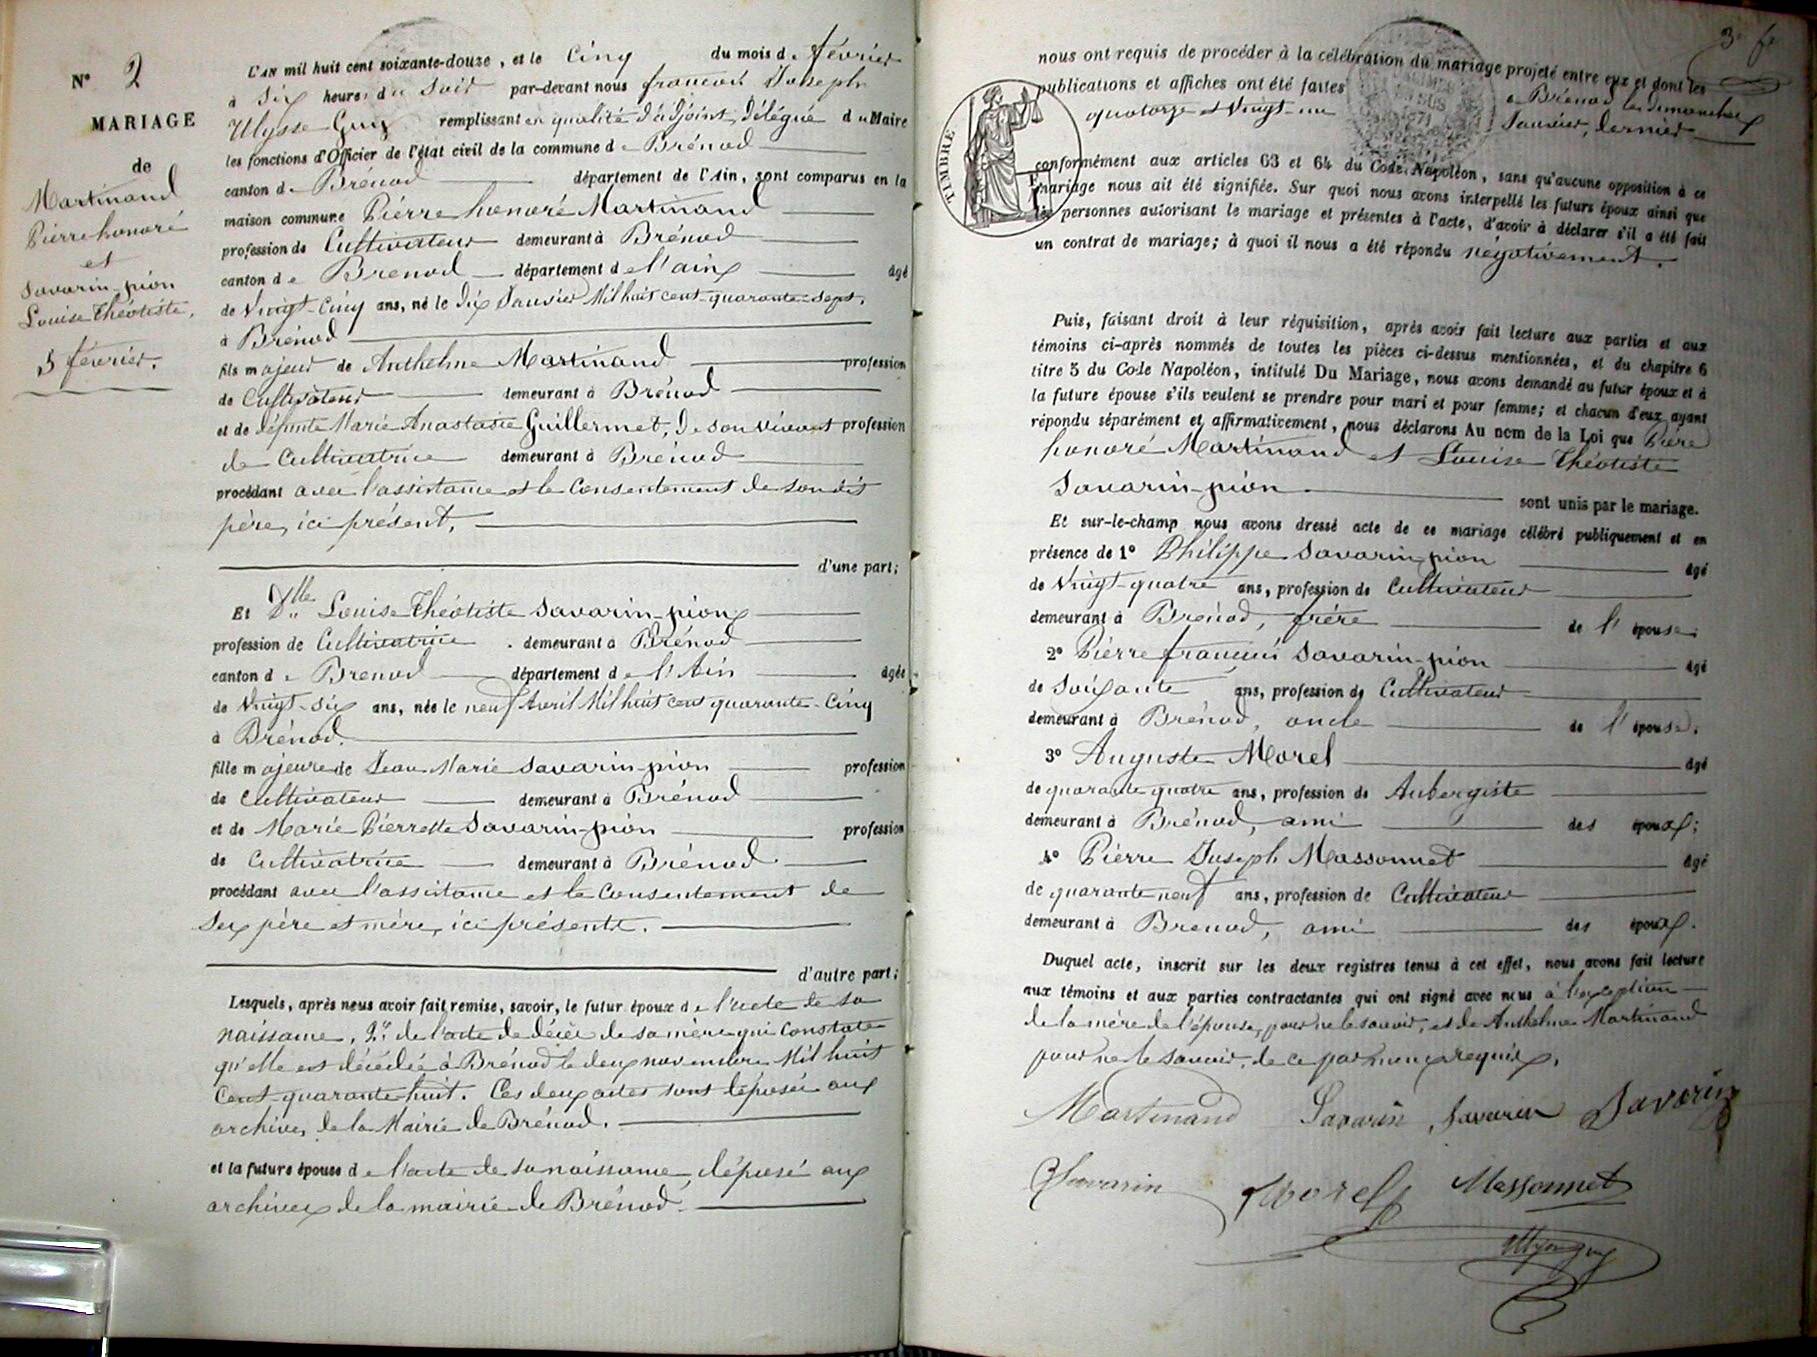 N° 2
MARIAGE
de
Martinand
Pierre honoré
et
Savarin-pion
Louise Théotiste,
5 février.
L'AN mil huit cent soixante-douze, et le Cinq du mois de février
à Six heures du Soir par-devant nous françois Joseph
Ulysse Guy remplissant en qualité d'adjoint, délégué du Maire
les fonctions d'Officier de l'état civil de la commune de Brénod
canton de Brénod département de l'Ain, sont comparus en la
maison commune Pierre honoré Martinand
profession de Cultivateur demeurant à Brénod
canton de Brenod département de l'ain âgé
de Vingt-Cinq ans, né le dix Janvier Mil huit cent quarante-sept,
à Brénod
fils majeur de Anthelme Martinand profession
de Cultivateur demeurant à Brénod
et de défunte Marie Anastasie Guillermet, de son vivant profession
de Cultivatrice demeurant à Brénod
procédant avec l'assistance et le Consentement de son dit
père, ici présent,
d'une part;
Et Dlle Louise Théotiste Savarin-pion
profession de Cultivatrice demeurant à Brénod
canton de Brenod département de l'Ain âgée
de Vingt-six ans, née le neuf Avril Mil huit cent quarante-Cinq
à Brénod.
fille majeure de Jean Marie Savarin-pion profession
de Cultivateur demeurant à Brénod
et de Marie Pierrette Savarin-pion profession
de Cultivatrice demeurant à Brénod
procédant avec l'assistance et le Consentement de
ses père et mère, ici présents.
d'autre part;
Lesquels, après nous avoir fait remise, savoir, le futur époux de l'acte de sa
naissance, 2° de l'acte de décès de sa mère qui Constate
qu'elle est décédée à Brénod le deux novembre Mil huit
Cent-quarante-huit. Ces deux actes sont déposés aux
archives de la Mairie de Brénod.
et la future épouse de l'acte de sa naissance, déposé aux
archives de la mairie de Brénod.
3e f.
nous ont requis de procéder à la célébration du mariage projeté entre eux et dont les
publications et affiches ont été faites à Brénod les dimanches
quatorze et Vingt-un Janvier, dernier
TIMBRE
conformément aux articles 63 et 64 du Code Napoléon, sans qu'aucune opposition à ce
mariage nous ait été signifiée. Sur quoi nous avons interpellé les futurs époux ainsi que
les personnes autorisant le mariage et présentes à l'acte, d'avoir à déclarer s'il a été fait
un contrat de mariage; à quoi il nous a été répondu négativement.
Puis, faisant droit à leur réquisition, après avoir fait lecture aux parties et aux
témoins ci-après nommés de toutes les pièces ci-dessus mentionnées, et du chapitre 6
titre 5 du Code Napoléon, intitulé Du Mariage, nous avons demandé au futur époux et à
la future épouse s'ils veulent se prendre pour mari et pour femme; et chacun d'eux ayant
répondu séparément et affirmativement, nous déclarons Au nom de la Loi que Pierre
honoré Martinand et Louise Théotiste
Savarin-pion sont unis par le mariage.
Et sur-le-champ nous avons dressé acte de ce mariage célébré publiquement et en
présence de 1° Philippe Savarin-pion âgé
de Vingt-quatre ans, profession de Cultivateur
demeurant à Brénod, frère de l'épouse;
2° Pierre françois Savarin-pion âgé
de soixante ans, profession de Cultivateur
demeurant à Brénod, oncle de l'épouse.
3° Auguste Morel âgé
de quarante quatre ans, profession de Aubergiste
demeurant à Brénod, ami des époux;
4° Pierre Joseph Massonnet âgé
de quarante neuf ans, profession de Cultivateur
demeurant à Brenod, ami des époux.
Duquel acte, inscrit sur les deux registres tenus à cet effet, nous avons fait lecture
aux témoins et aux parties contractantes qui ont signé avec nous à l'exception
de la mère de l'épouse, pour ne le savoir, et de Anthelme Martinand
pour ne le savoir, de ce par nous requis.
Martinand Savarin Savarin Savarin
Savarin Morel Massonnet